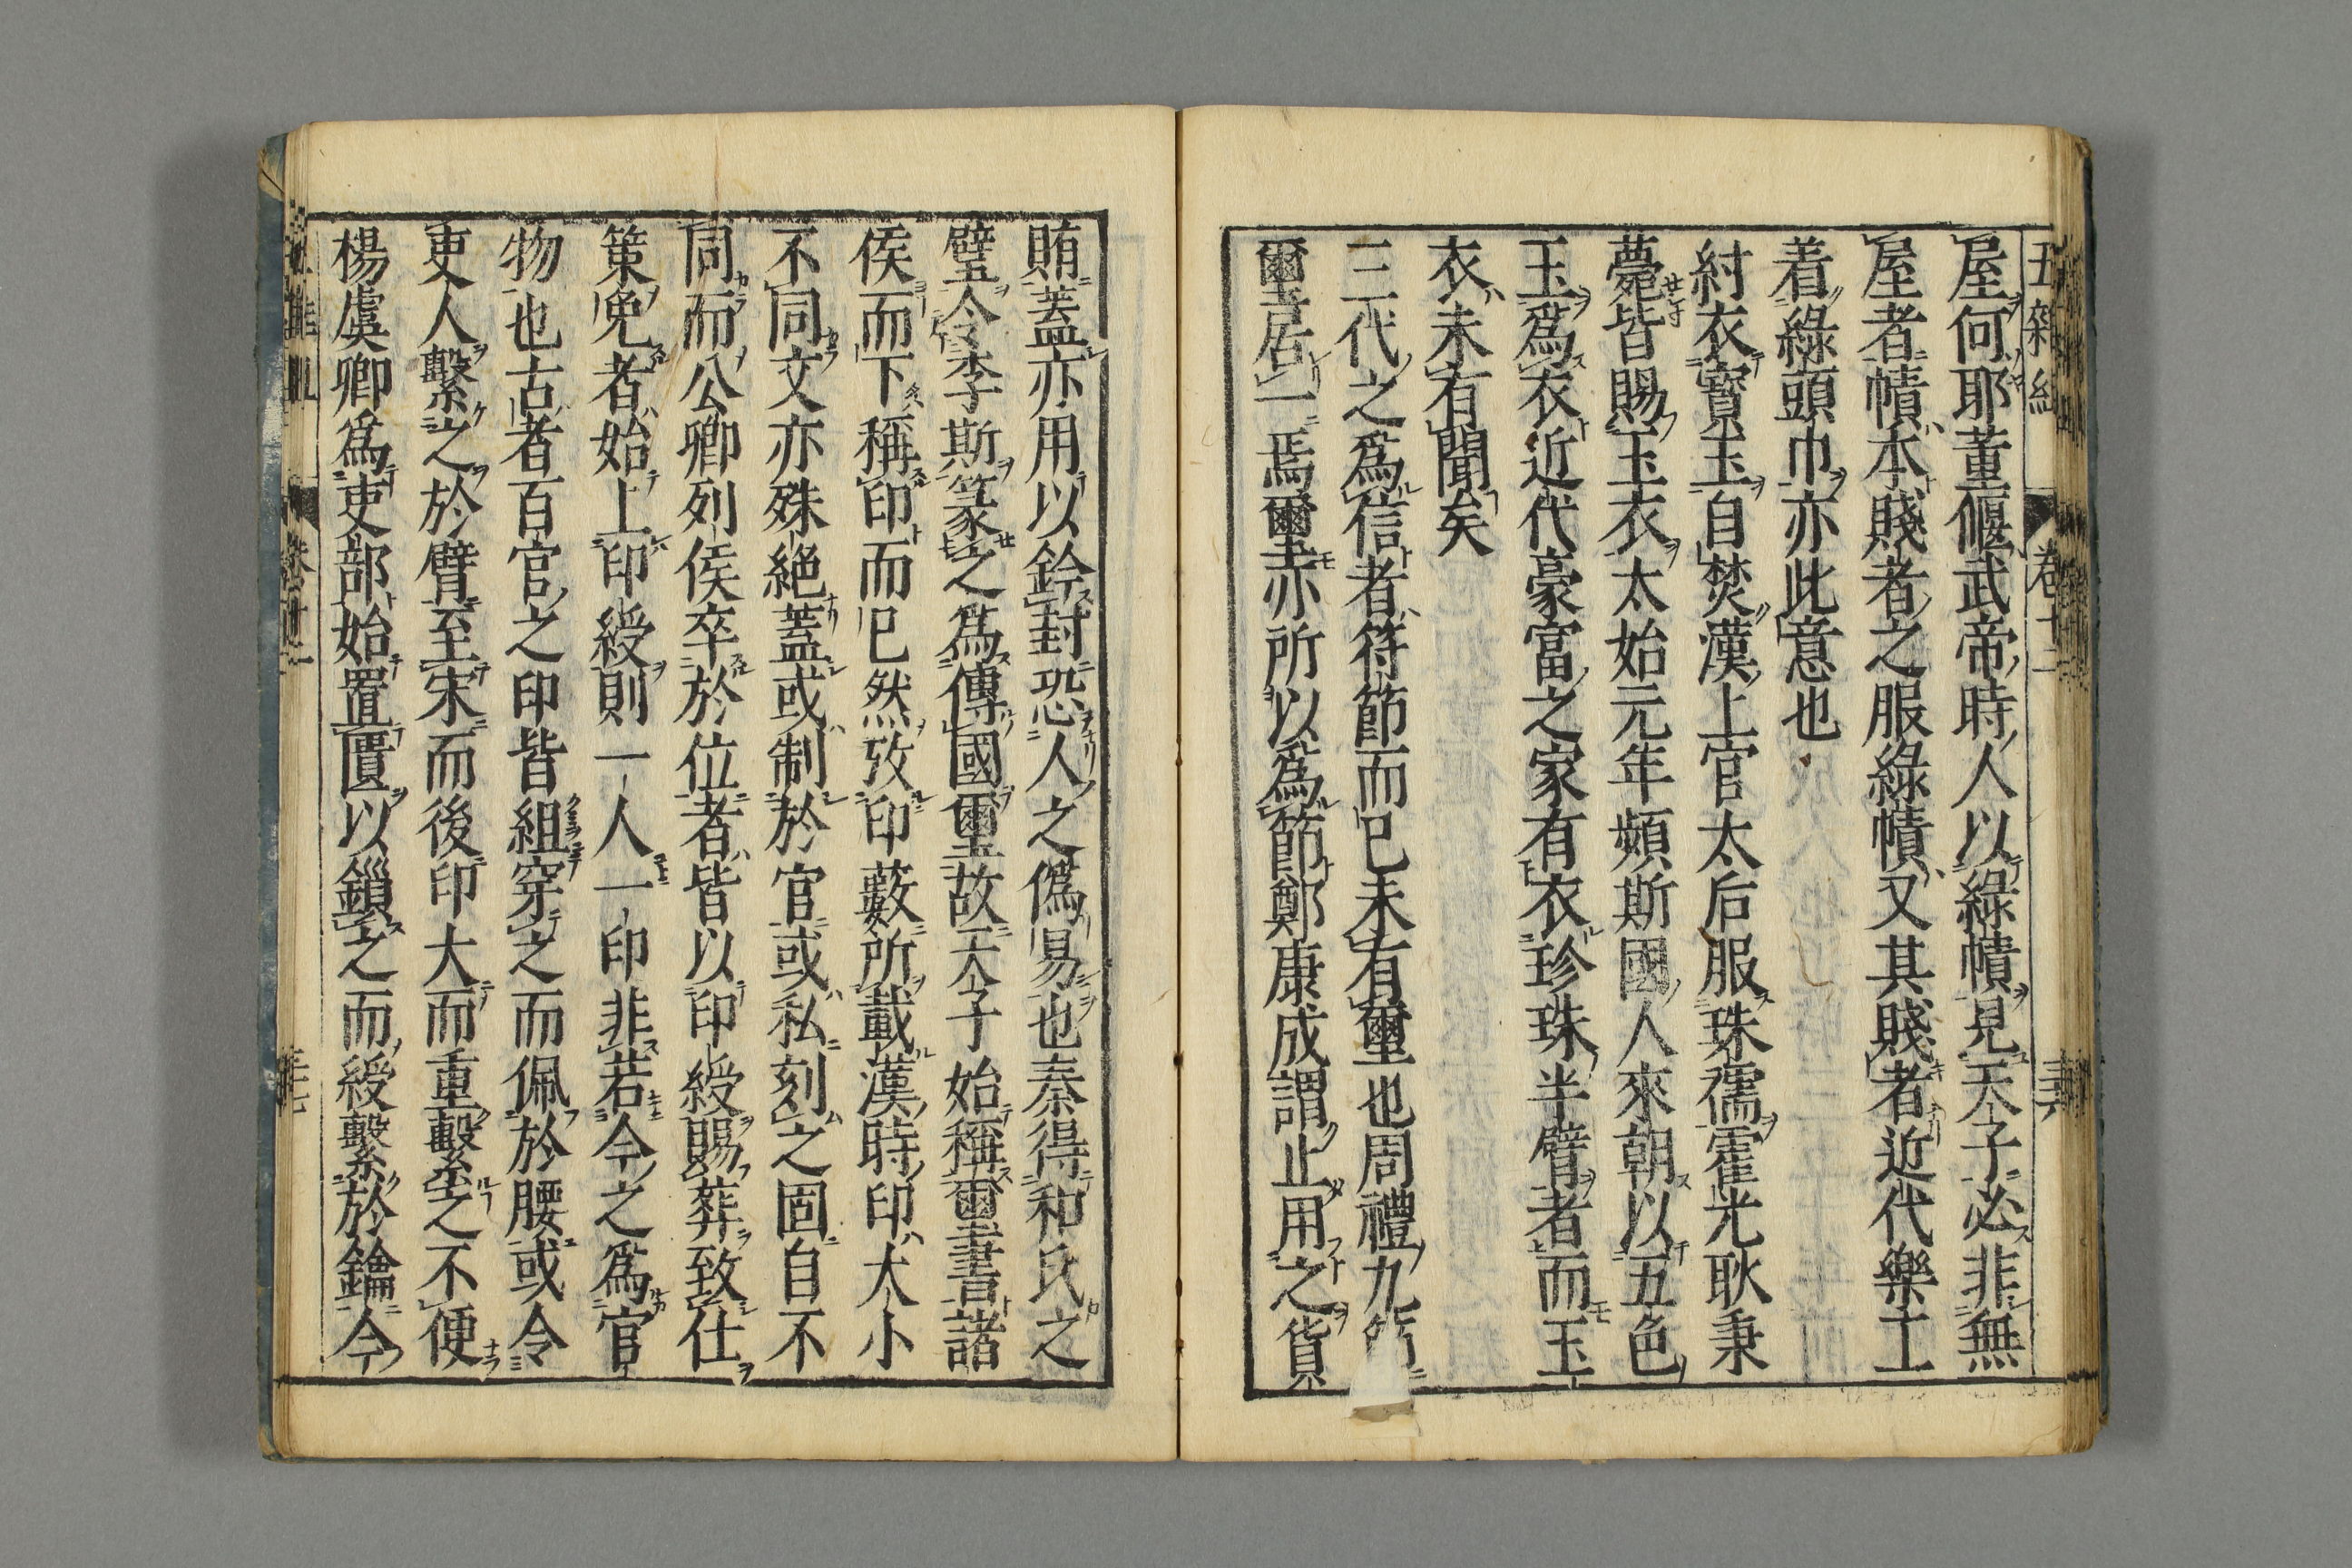 五雜組 卷十二
屋何耶董偃武帝時人以綠幘見天子必非無
屋者幘本賤者之服綠幘又其賤者近代樂工
着綠頭巾亦此意也
紂衣寳玉自焚漢上官太后服珠襦霍光耿秉
薨皆賜玉衣太始元年頻斯國人來朝以五色
玉爲衣近代豪富之家有衣珍珠半臂者而玉
衣未有聞矣
三代之爲信者符節而已未有璽也周禮九節
璽居一焉璽亦所以爲節鄭康成謂止用之貨
賄蓋亦用以鈐封恐人之僞易也秦得和氏之
璧令李斯篆之爲傳國璽故天子始稱璽書諸
侯而下稱印而已然攷印藪所載漢時印大小
不同文亦殊絶蓋或制於官或私刻之固自不
同而公卿列侯卒於位者皆以印綬賜葬致仕
策免者始上印綬則一人一印非若今之爲官
物也古者百官之印皆組穿之而佩於腰或令
吏人繫之於臂至宋而後印大而重繫之不便
楊虞卿爲吏部始置匱以鎖之而綬繫於鑰今
卷十二